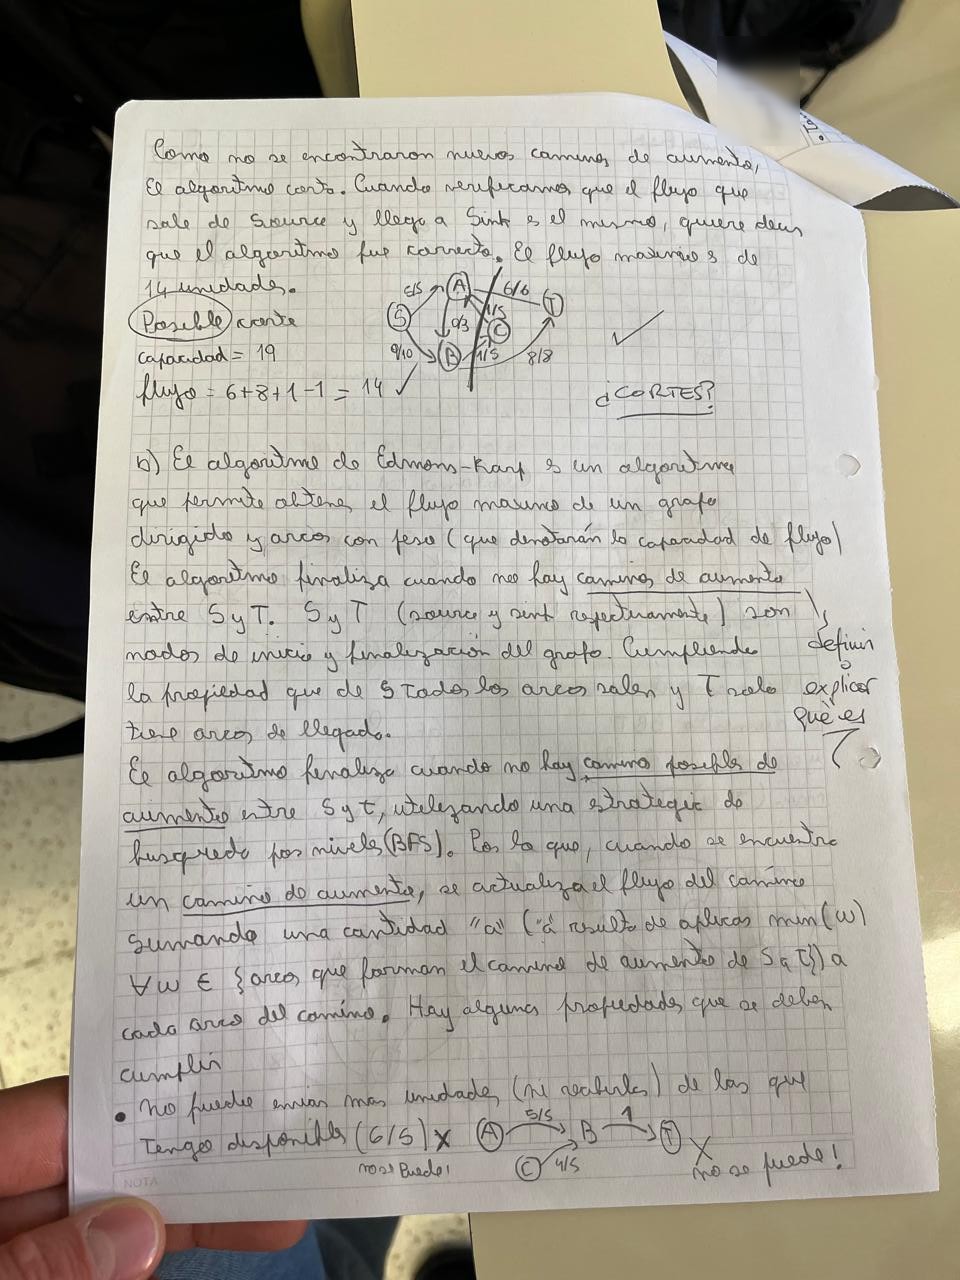 Como no se encontraron nuevos caminos de aumento,
El algoritmo corto. Cuando verificamos que el flujo que
sale de Source y llega a Sink es el mismo, quiere decir
que el algoritmo fue correcto. El flujo maximo es de
14 unidades.
Posible corte
capacidad = 19
flujo = 6+8+1-1 = 14 ✓
5/5 A 6/6 T
S 0/3 1/5 C
9/10 B 1/5 8/8
✓
¿CORTES?
b) El algoritmo de Edmons-Karp es un algoritmo
que permite obtener el flujo maximo de un grafo
dirigido y arcos con peso (que denotarán la capacidad de flujo)
El algoritmo finaliza cuando no hay caminos de aumento
entre S y T. S y T (source y sink respectivamente) son
nodos de inicio y finalización del grafo. Cumpliendo
la propiedad que de S todos los arcos salen y T solo
tiene arcos de llegada.
definir
o
explicar
qué es
El algoritmo finaliza cuando no hay camino posible de
aumento entre S y t, utilizando una estrategia de
busqueda por niveles (BFS). Por lo que, cuando se encuentra
un camino de aumento, se actualiza el flujo del camino
sumando una cantidad "a" ("a" resulta de aplicar min(w)
∀w ∈ {arcos que forman el camino de aumento de S a T}) a
cada arco del camino. Hay algunas propiedades que se deben
cumplir
• no puedo enviar mas unidades (ni recibirlas) de las que
tengo disponibles (6/5) X A 5/5 B 1 T X
no se puede! C 4/5 no se puede!
NOTA